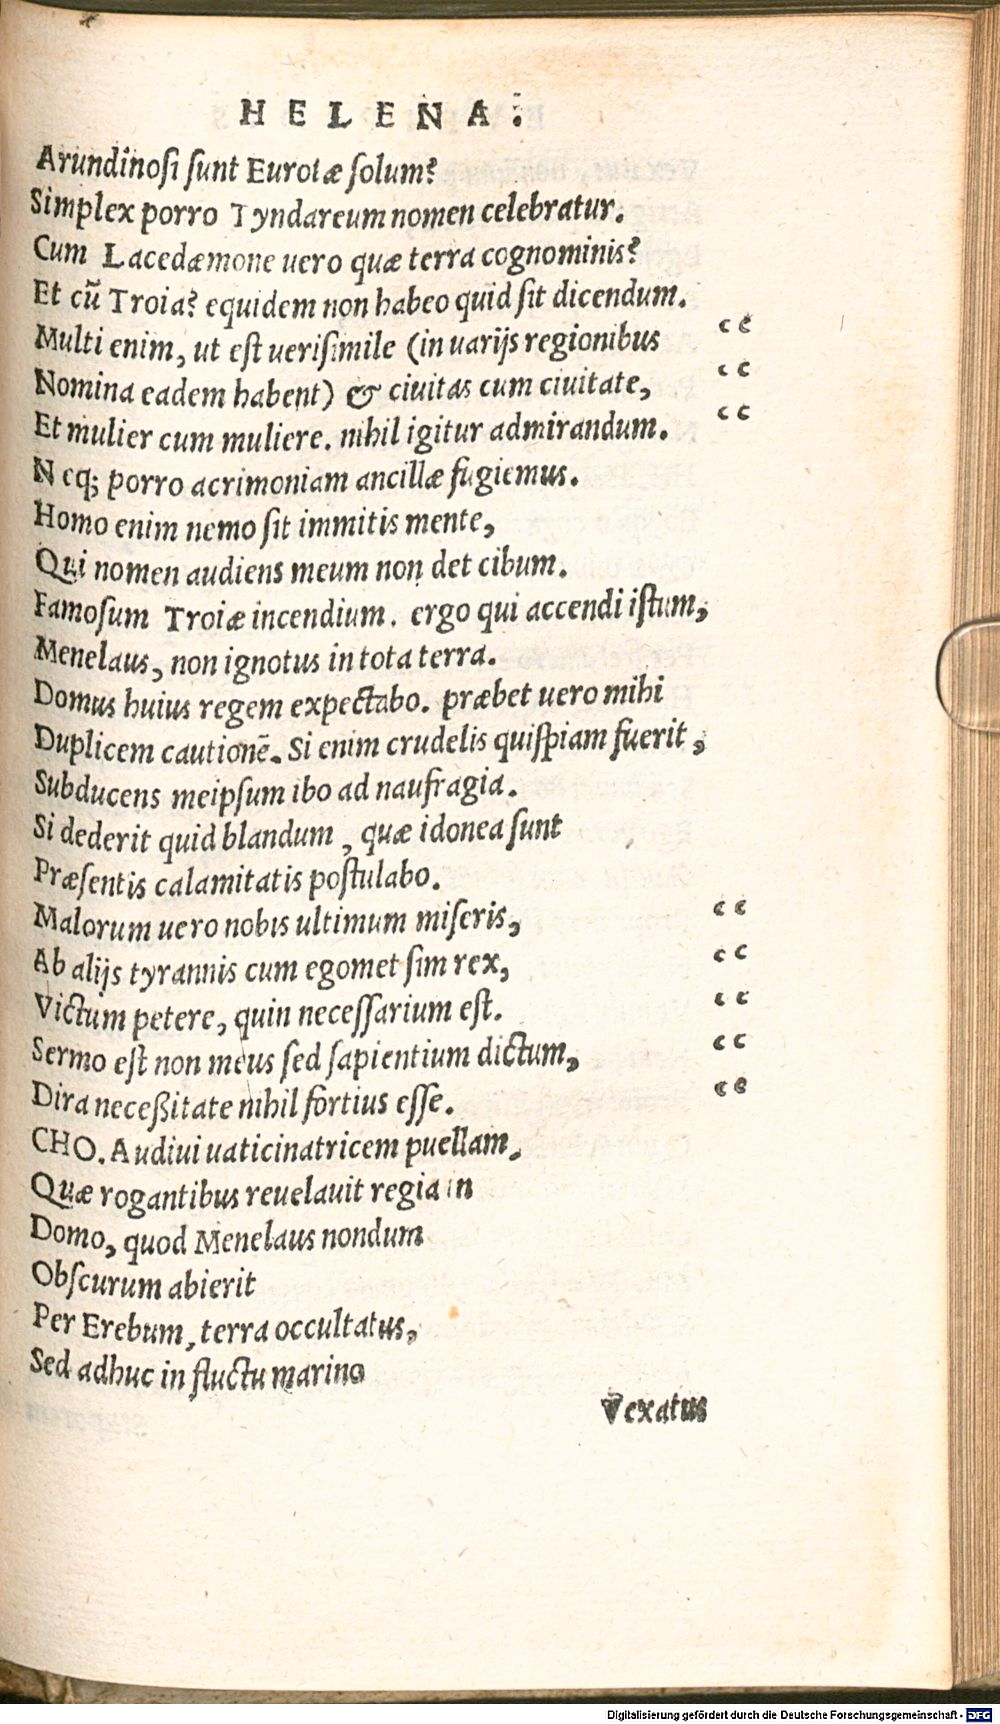 HELENA.
Arundinosi sunt Eurotæ solum?
Simplex porro Tyndareum nomen celebratur.
Cum Lacedæmone uero quæ terra cognominis?
Et cū Troia? equidem non habeo quid sit dicendum.
Multi enim, ut est uerisimile (in uarijs regionibus “
Nomina eadem habent) & ciuitas cum ciuitate, “
Et mulier cum muliere. nihil igitur admirandum. “
Neq; porro acrimoniam ancillæ fugiemus.
Homo enim nemo sit immitis mente,
Qui nomen audiens meum non det cibum.
Famosum Troiæ incendium. ergo qui accendi istum,
Menelaus, non ignotus in tota terra.
Domus huius regem expectabo. præbet uero mihi
Duplicem cautionē. Si enim crudelis quispiam fuerit,
Subducens meipsum ibo ad naufragia.
Si dederit quid blandum, quæ idonea sunt
Præsentis calamitatis postulabo.
Malorum uero nobis ultimum miseris, “
Ab alijs tyrannis cum egomet sim rex, “
Victum petere, quin necessarium est. “
Sermo est non meus sed sapientium dictum, “
Dira neceßitate nihil fortius esse. “
CHO. Audiui uaticinatricem puellam,
Quæ rogantibus reuelauit regia in
Domo, quod Menelaus nondum
Obscurum abierit
Per Erebum, terra occultatus,
Sed adhuc in fluctu marino
Vexatus
Digitalisierung gefördert durch die Deutsche Forschungsgemeinschaft - DFG